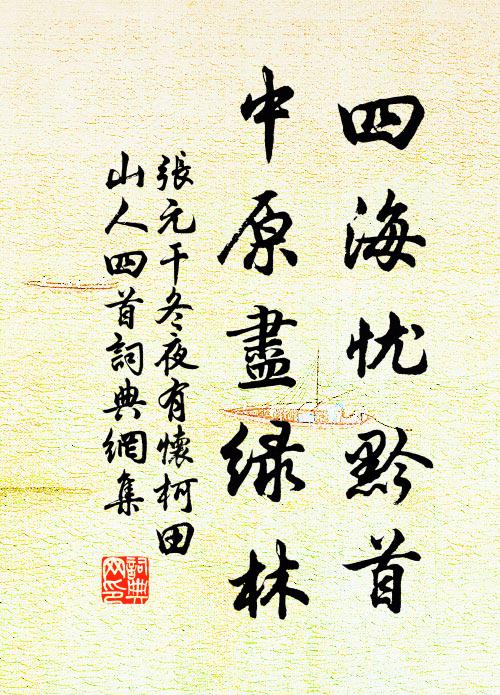 四海忧黔首
中原盡緑林
張元干冬夜有懷柯田
山人四首詞典網集
詞典
网印